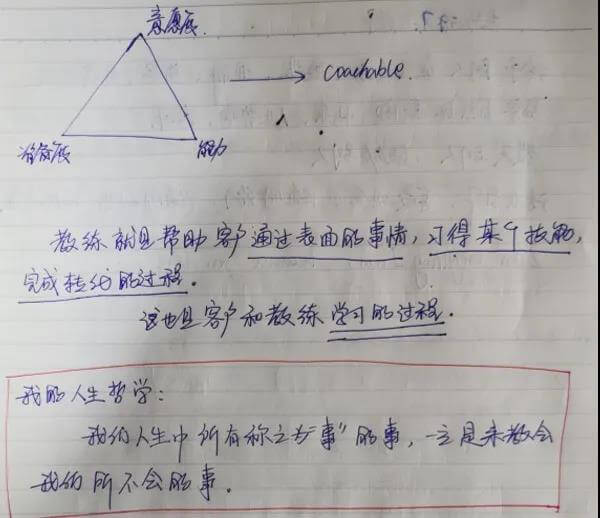 意愿度
coachable.
准备度
能力
教练就是帮助客户通过表面的事情，习得某个技能，
完成转化的过程。
这也是客户和教练学习的过程。
我的人生哲学：
我们人生中所有称之为“事”的事，一定是来教会
我们所不会的事。